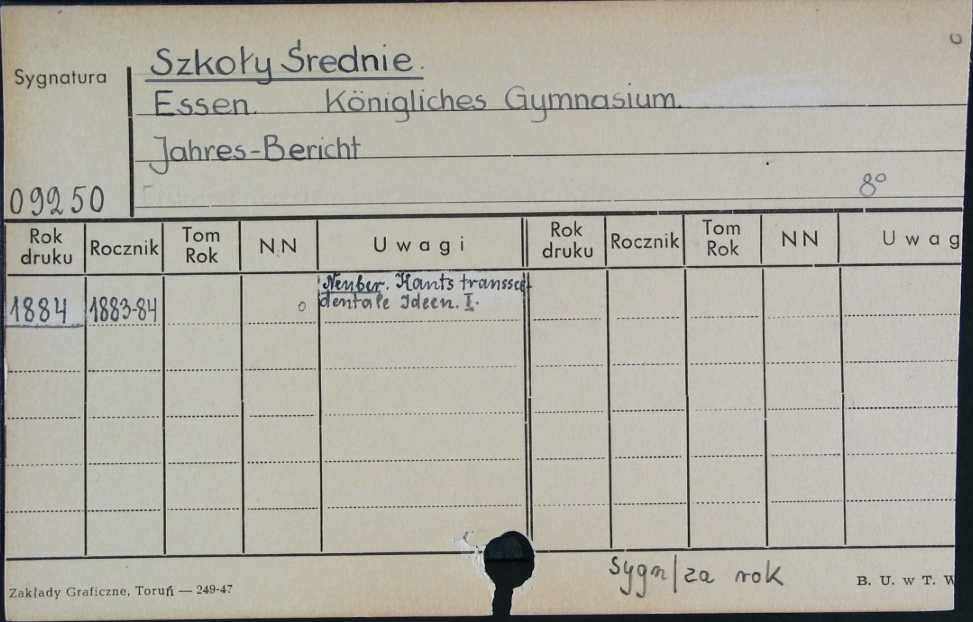 Szkoły Średnie.
Sygnatura
Essen. Königliches Gymnasium.
Jahres-Bericht
09250
8°
Rok druku Rocznik Tom Rok NN Uwagi Rok druku Rocznik Tom Rok NN Uwag
Neuber. Kants transsce-
1884 1883-84 0 dentale Ideen. I.
Sygn/za rok
Zakłady Graficzne, Toruń — 249-47
B. U. w T. W